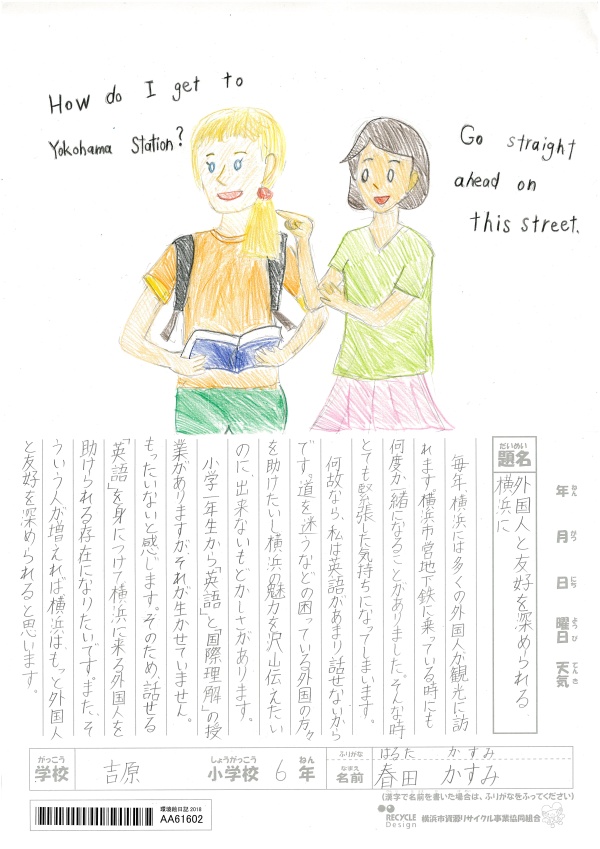 How do I get to
Yokohama Station?
Go straight
ahead on
this street.
だいめい
題名
外国人と友好を深められる
横浜に
年 ねん
月 がつ
日 にち
曜日 ようび
天気 てんき
毎年、横浜には多くの外国人が観光に訪
れます。横浜市営地下鉄に乗っている時にも
何度か一緒になることがありました。そんな時
とても緊張した気持ちになってしまいます。
何故なら、私は英語があまり話せないから
です。道を迷うなどの困っている外国の方々
を助けたいし、横浜の魅力を沢山伝えたい
のに、出来ないもどかしさがあります。
小学一年生から「英語」と「国際理解」の授
業がありますが、それが生かせていません。
もったいないと感じます。そのため、話せる
「英語」を身につけて横浜に来る外国人を
助けられる存在になりたいです。また、そ
ういう人が増えれば横浜は、もっと外国人
と友好を深められると思います。
がっこう しょうがっこう ねん ふりがな はるた かすみ
学校 吉原 小学校 6年 なまえ 名前 春田 かすみ
(漢字で名前を書いた場合は、ふりがなをふってください)
環境絵日記 2018
AA61602
RECYCLE Design 横浜市資源リサイクル事業協同組合